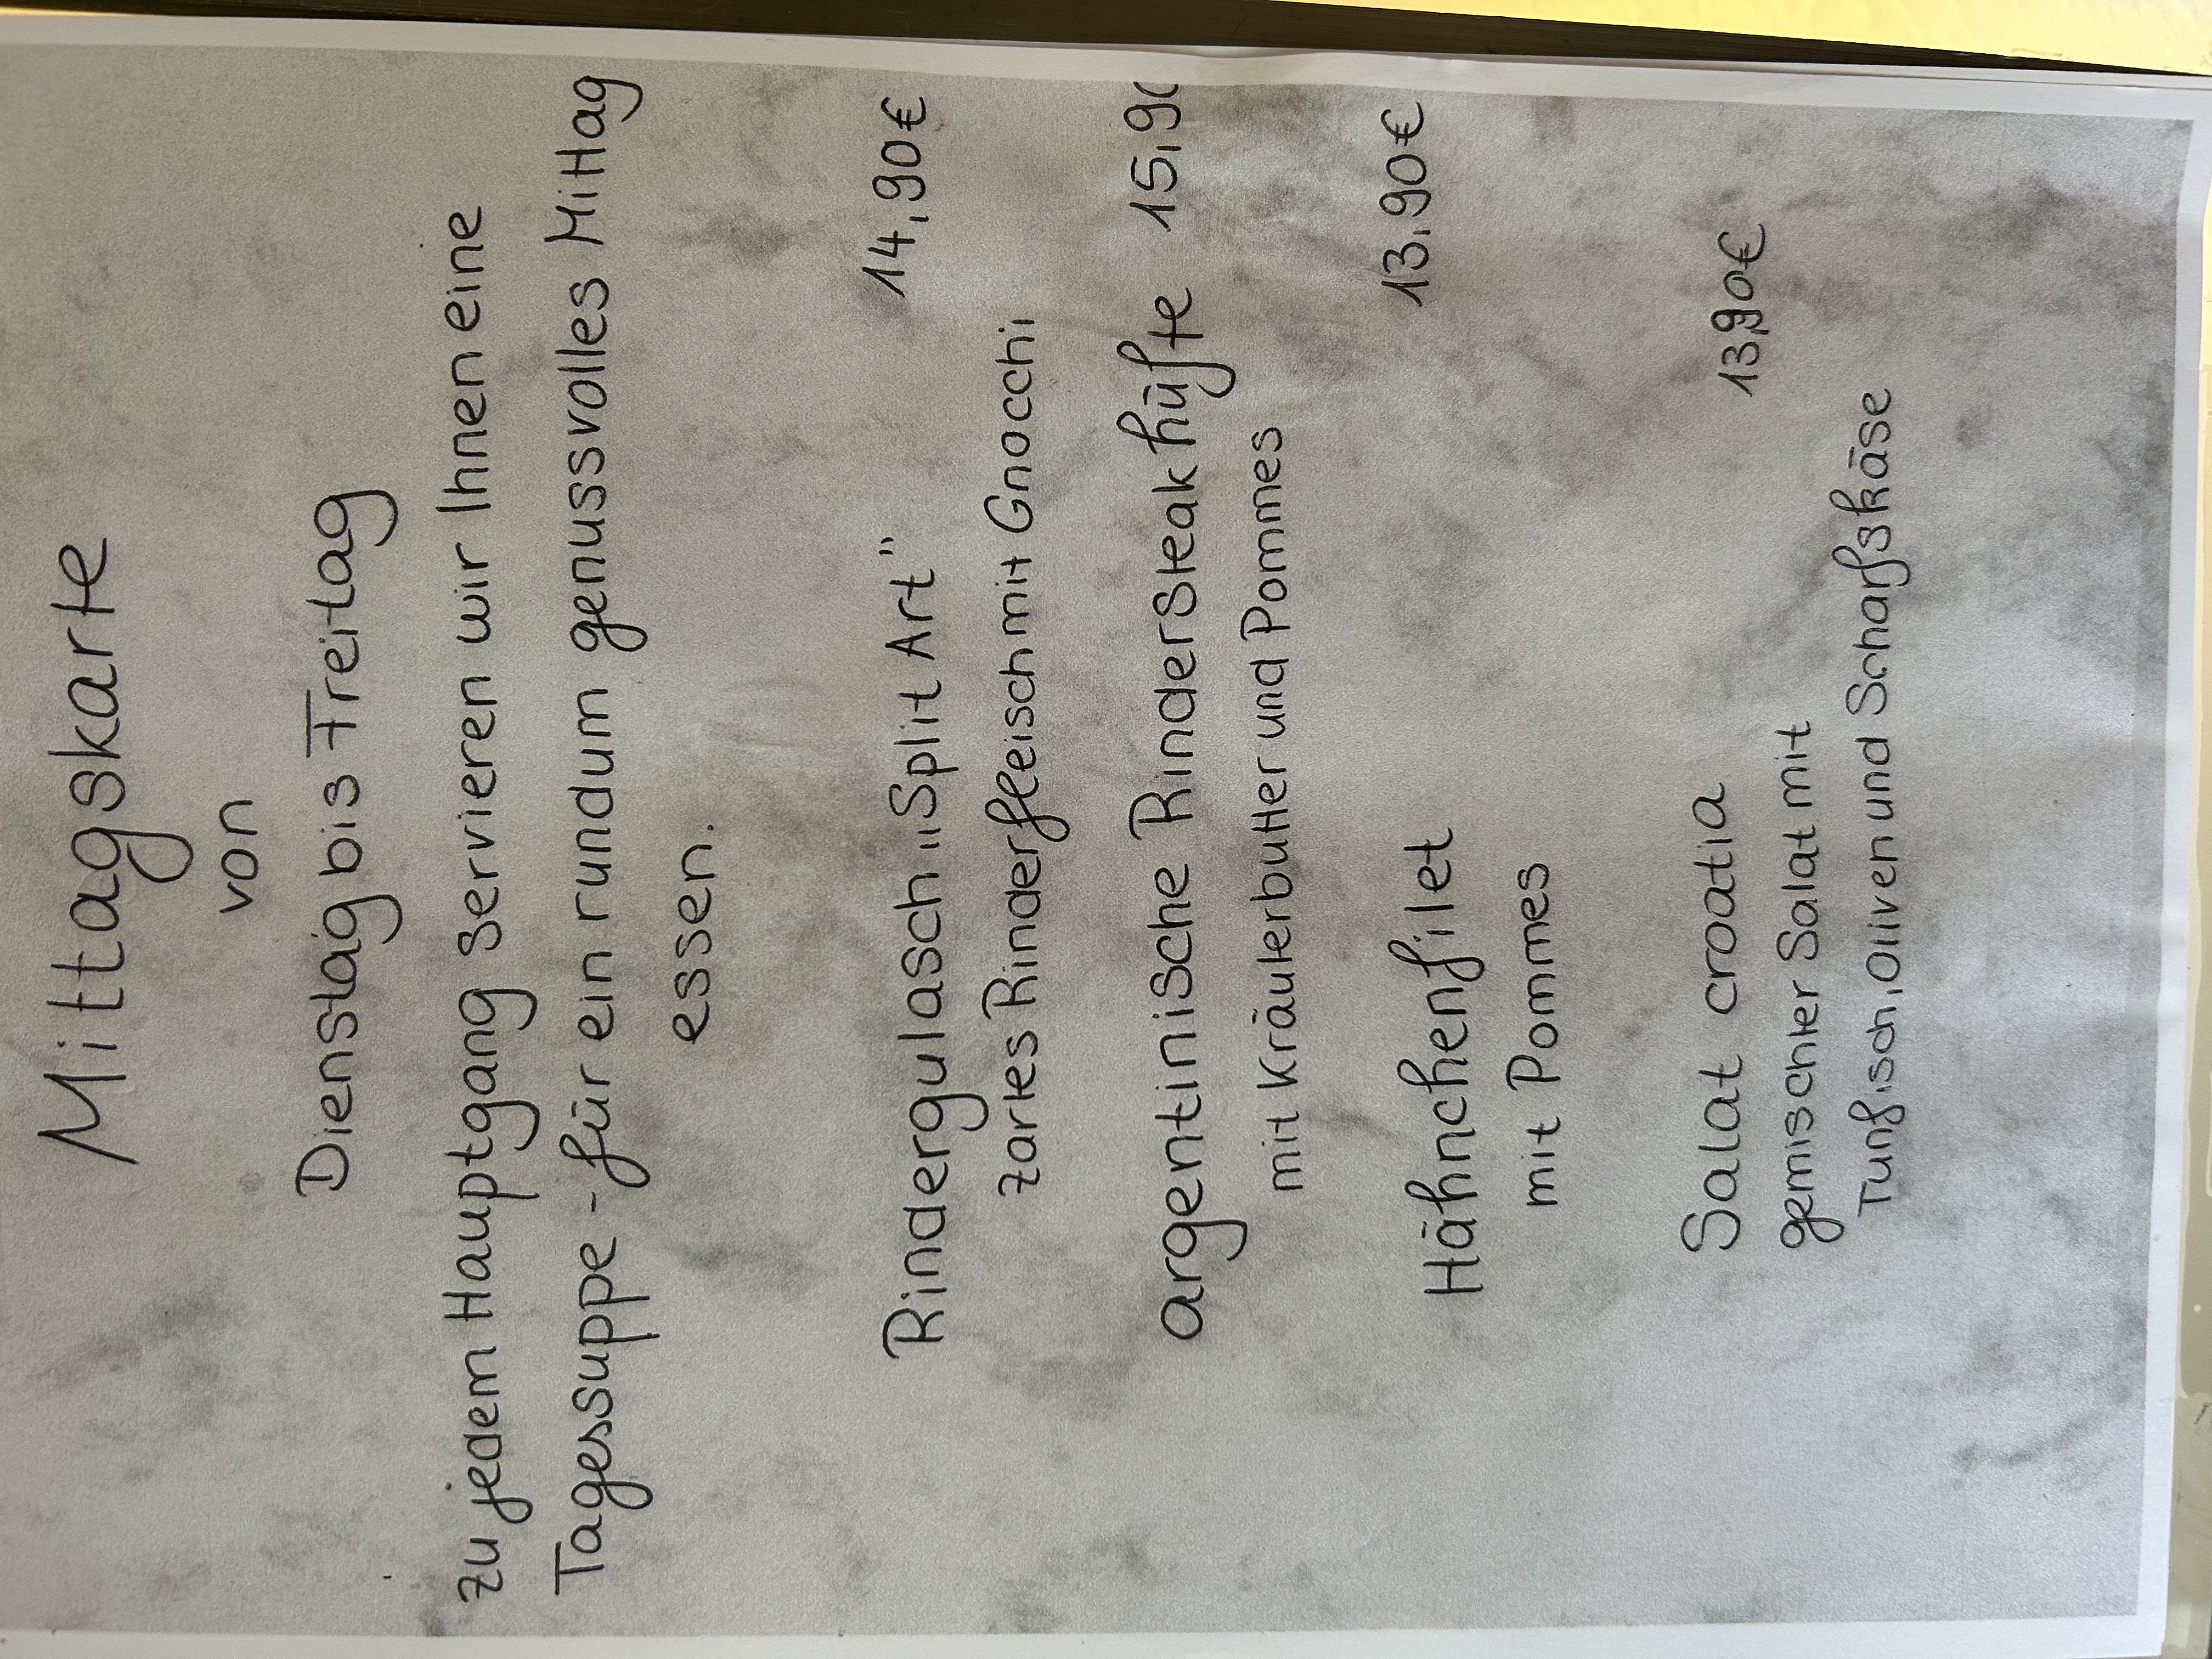 Mittagskarte
von
Dienstag bis Freitag
zu jedem Hauptgang servieren wir Ihnen eine
Tagessuppe - für ein rundum genussvolles Mittag
essen.
Rindergulasch "Split Art" 14,90€
zartes Rinderfleisch mit Gnocchi
argentinische Rindersteakhüfte 15,90
mit Kräuterbutter und Pommes
Hähnchenfilet 13,90€
mit Pommes
Salat croatia 13,90€
gemischter Salat mit
Tunfisch, Oliven und Schafskäse